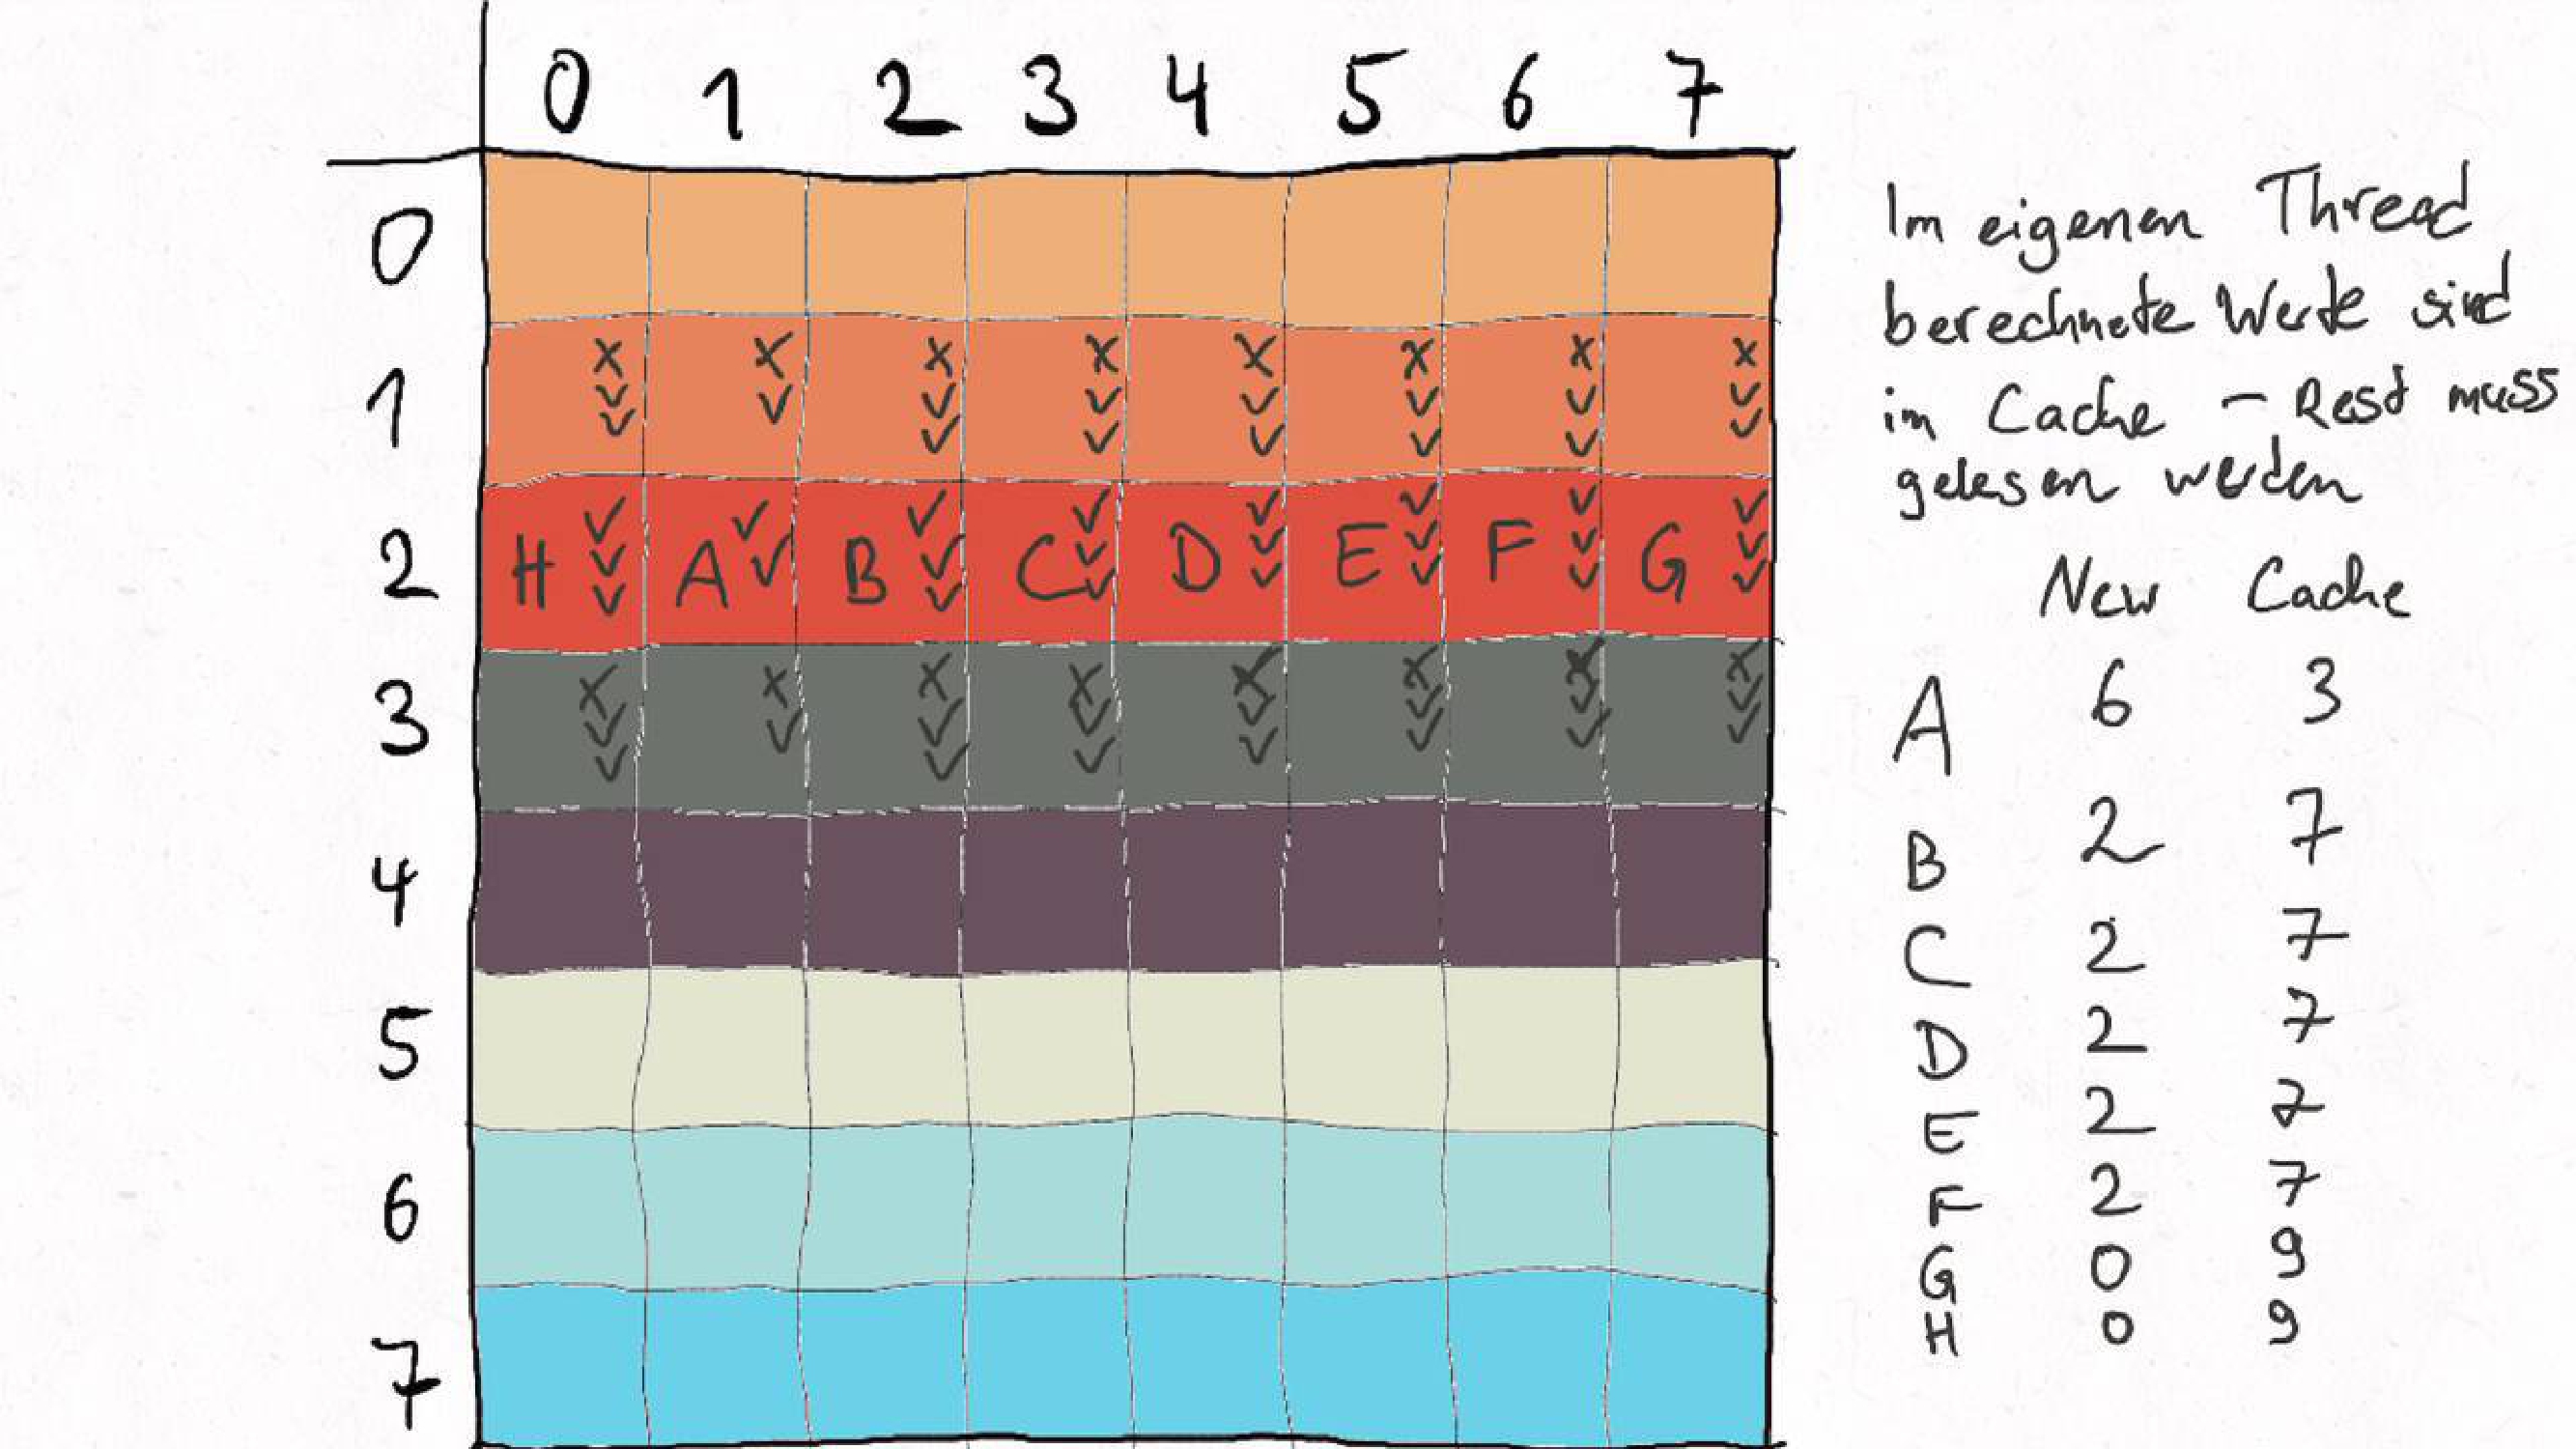 0 1 2 3 4 5 6 7
0
1
2 H A B C D E F G
3
4
5
6
7
Im eigenen Thread
berechnete Werte sind
im Cache - Rest muss
gelesen werden
New Cache
A 6 3
B 2 7
C 2 7
D 2 7
E 2 7
F 2 7
G 0 9
H 0 9